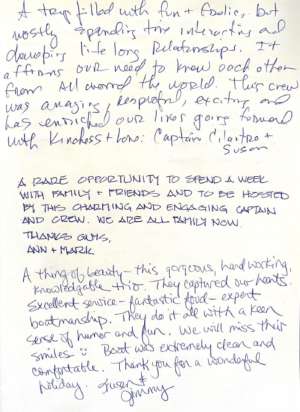 A trip filled with fun + foodie, but
mostly spending time interacting and
developing life long relationships. It
affirms our need to know each other
from all around the world. This crew
was amazing, respectful, exciting and
has enriched our lives going forward
with kindness + love. Captain Cilantro +
Susan
A RARE OPPORTUNITY TO SPEND A WEEK
WITH FAMILY + FRIENDS AND TO BE HOSTED
BY THIS CHARMING AND ENGAGING CAPTAIN
AND CREW. WE ARE ALL FAMILY NOW.
THANKS GUYS,
ANN + MARK
A thing of beauty - this gorgeous, hard working,
knowledgable trio. They captured our hearts.
Excellent service - fantastic food - expert
boatmanship. They do it all with a keen
sense of humor and fun. We will miss their
smiles :) Boat was extremely clean and
comfortable. Thank you for a wonderful
holiday. Susan &
Jimmy